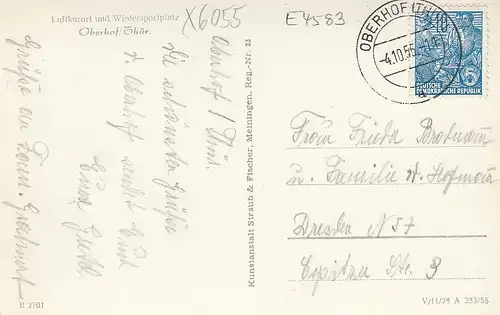 Luftkurort und Wintersportplatz
Oberhof/Thür.
X6055
E4583
OBERHOF (THÜR)
-4.10.56
DEUTSCHE
DEMOKRATISCHE REPUBLIK
Oberhof / Thür.
Die schönsten Grüße
v. Oberhof sendet Euch
Eure
Grüße an Fam.
Kunstanstalt Straub & Fischer, Meiningen, Reg.-Nr. 23
Frau Frieda
u. Familie
Dresden N 57
Str. 3
B 2701
V/11/28 A 253/55